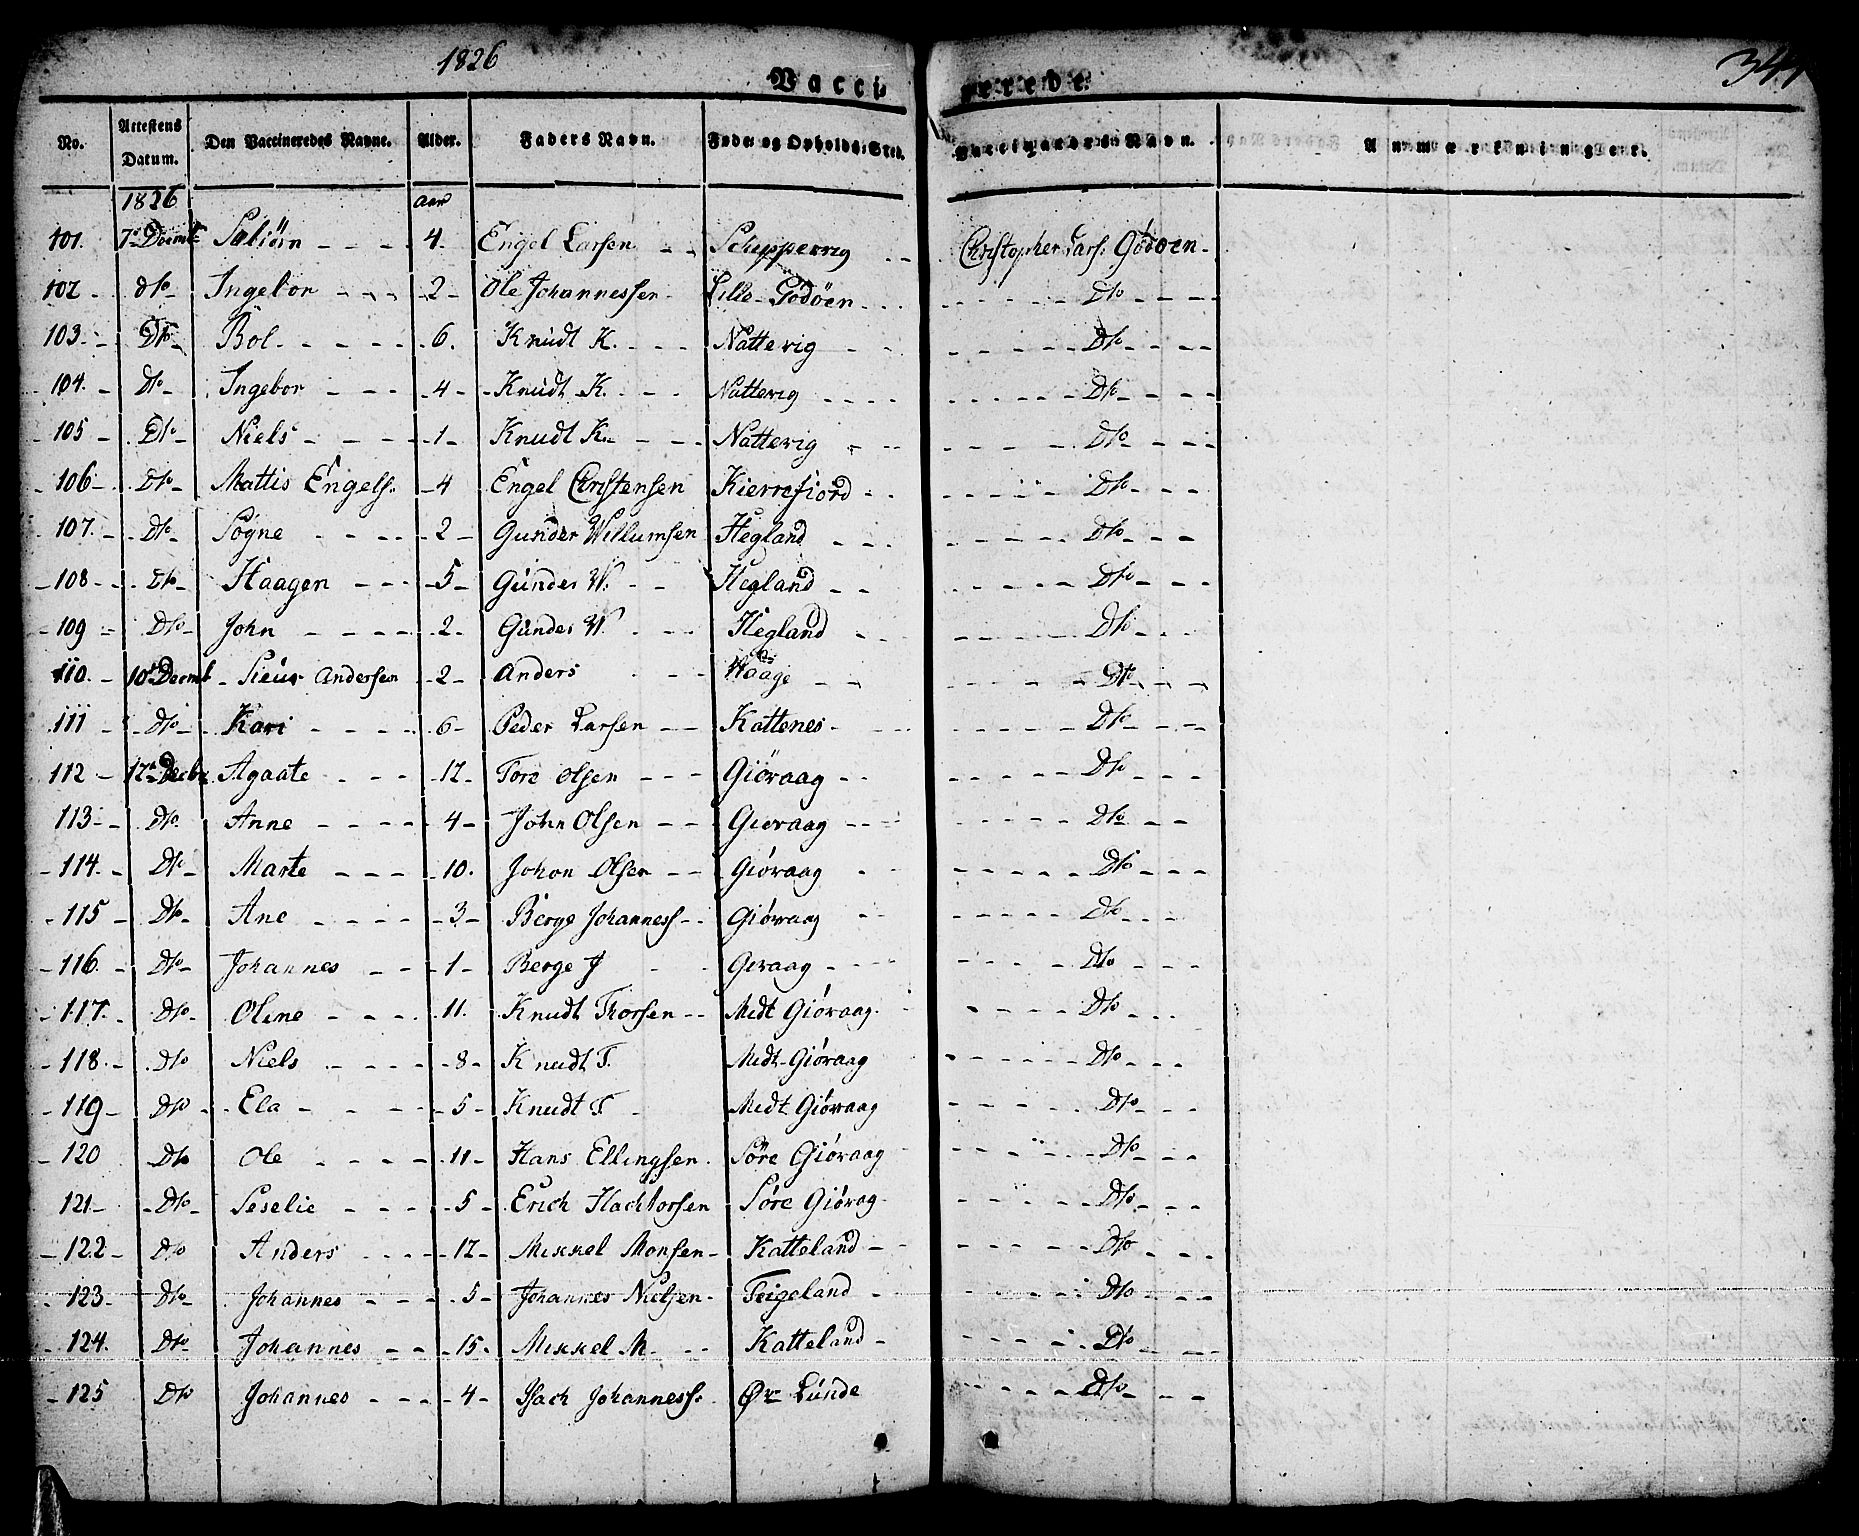 1826
Vaccinerede
No. Attestens Datum. Den Vaccineredes Navne. Alder. Faders Navn. Føde og Opholds-Sted. Vaccinateurs Navn. Anmærkninger.
1826 Aar
101. 7de Decmb Saliörn - - - 4. Engel Larsen - - Schippervig - - Christopher Lars. Godöen -
102 - dto - Ingebor - - - - 2 - Ole Johannessen - Lille-Godöen - - - Dto - - -
103. - Dto - Bol - - - - 6. Knudt K. - - - Nattevig - - - Dto - - -
104. - Dto - Ingebor - - - 4 - Knudt K. - - - Nattevig - - - - Dto - - -
105 - Dto - Niels - - - - 1 - Knudt K. - - - Nattevig - - - Dto - - -
106 - Dto - Mattis Engels. - 4 Engel Christensen Kierrefiord - - Dto - - -
107. - Dto - Sögne - - - - 2 - Gunder Willumsen Hegland - - - Dto - - -
108 - Dto - Haagen - - - 5 - Gunder W. - - Hegland - - Dto - - -
109 - Dto - John - - - - 2 - Gunder W. - - - Hegland - - Dto - - -
110. - 10de Decmb - Andersen - 2 - Anders - - Haage - - - Dto - - -
111 - Dto - Kari - - - - 6 - Peder Larsen - - Kattenes - - Dto - - -
112 - 12te Decbr Agaate - - - 12 - Tore Olsen - - - Giöraag - - Dto - - -
113 - - Dto - Anne - - - - 4 - John Olsen - - - Gieraag - - - Dto - - -
114. - Dto - Marte - - - 10. Johon Olsen - - Giöraag - - Dto - - -
115 - Dto - Ane - - - - 3 - Berge Johanness - - Giöraag - - Dto - - -
116. - Dto - Johannes - - 1 - Berge J - - Geraag - - - Dto - - -
117. - Dto - Oline - - - - 11. Knudt Thorsen - - Midt Giöraag - Dto - - -
118. - Dto Niels - - - - 8 - Knudt T. Midt-Giöraag Dto - - -
119 - Dto - Ela - - - - 5 - Knudt T - Midt Giöraag Dto - - -
120 Dto Ole - - - - 11 - Hans Ellingsen. Söre Giöraag Dto - - -
121 - - Dto - Seselie - - - 5 - Erich Hachtorsen Söre Giörag - Dto - - -
122 - Dto Anders - - - 12 - Mikkel Monsen - Katteland - - Dto - - -
123 - Dto - Johannes - - - 5 - Johannes Nielsen - Teigeland - Dto - - -
124. Dto - Johannes - - 15. Mikkel M. - - Katteland - Dto - - -
125 Dto Johannes - - - 4 - Isach Johanness. Øvr Lunde Dto - - -